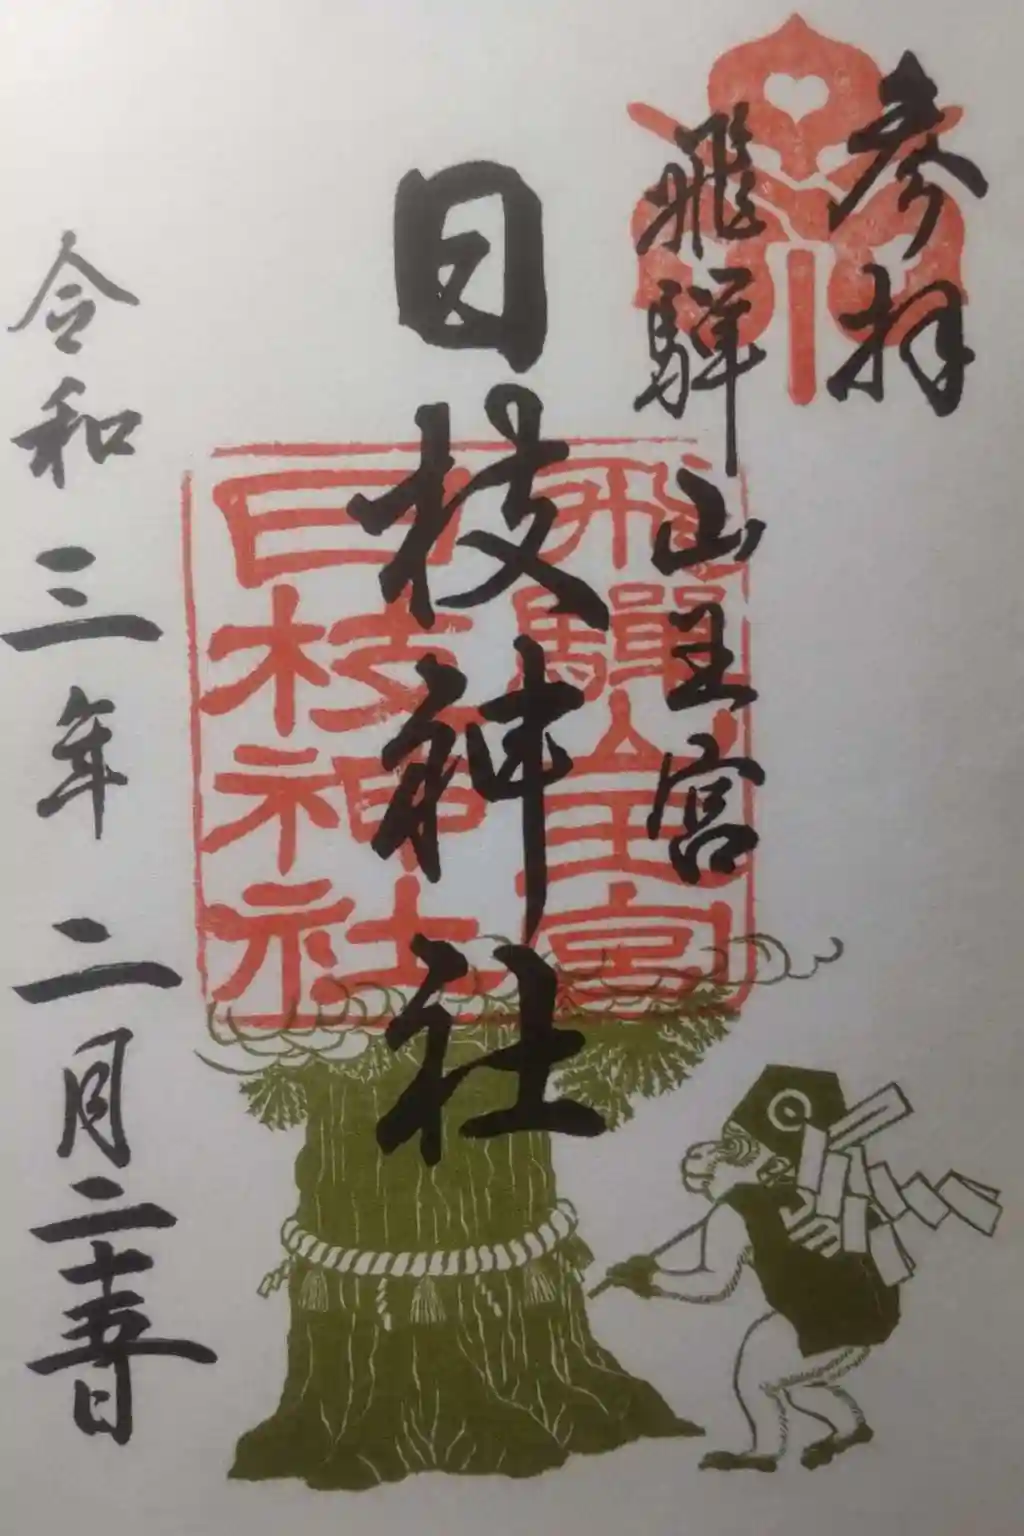 参拝
飛騨山王宮
日枝神社
令和三年二月二十五日
飛騨山王宮
日枝神社